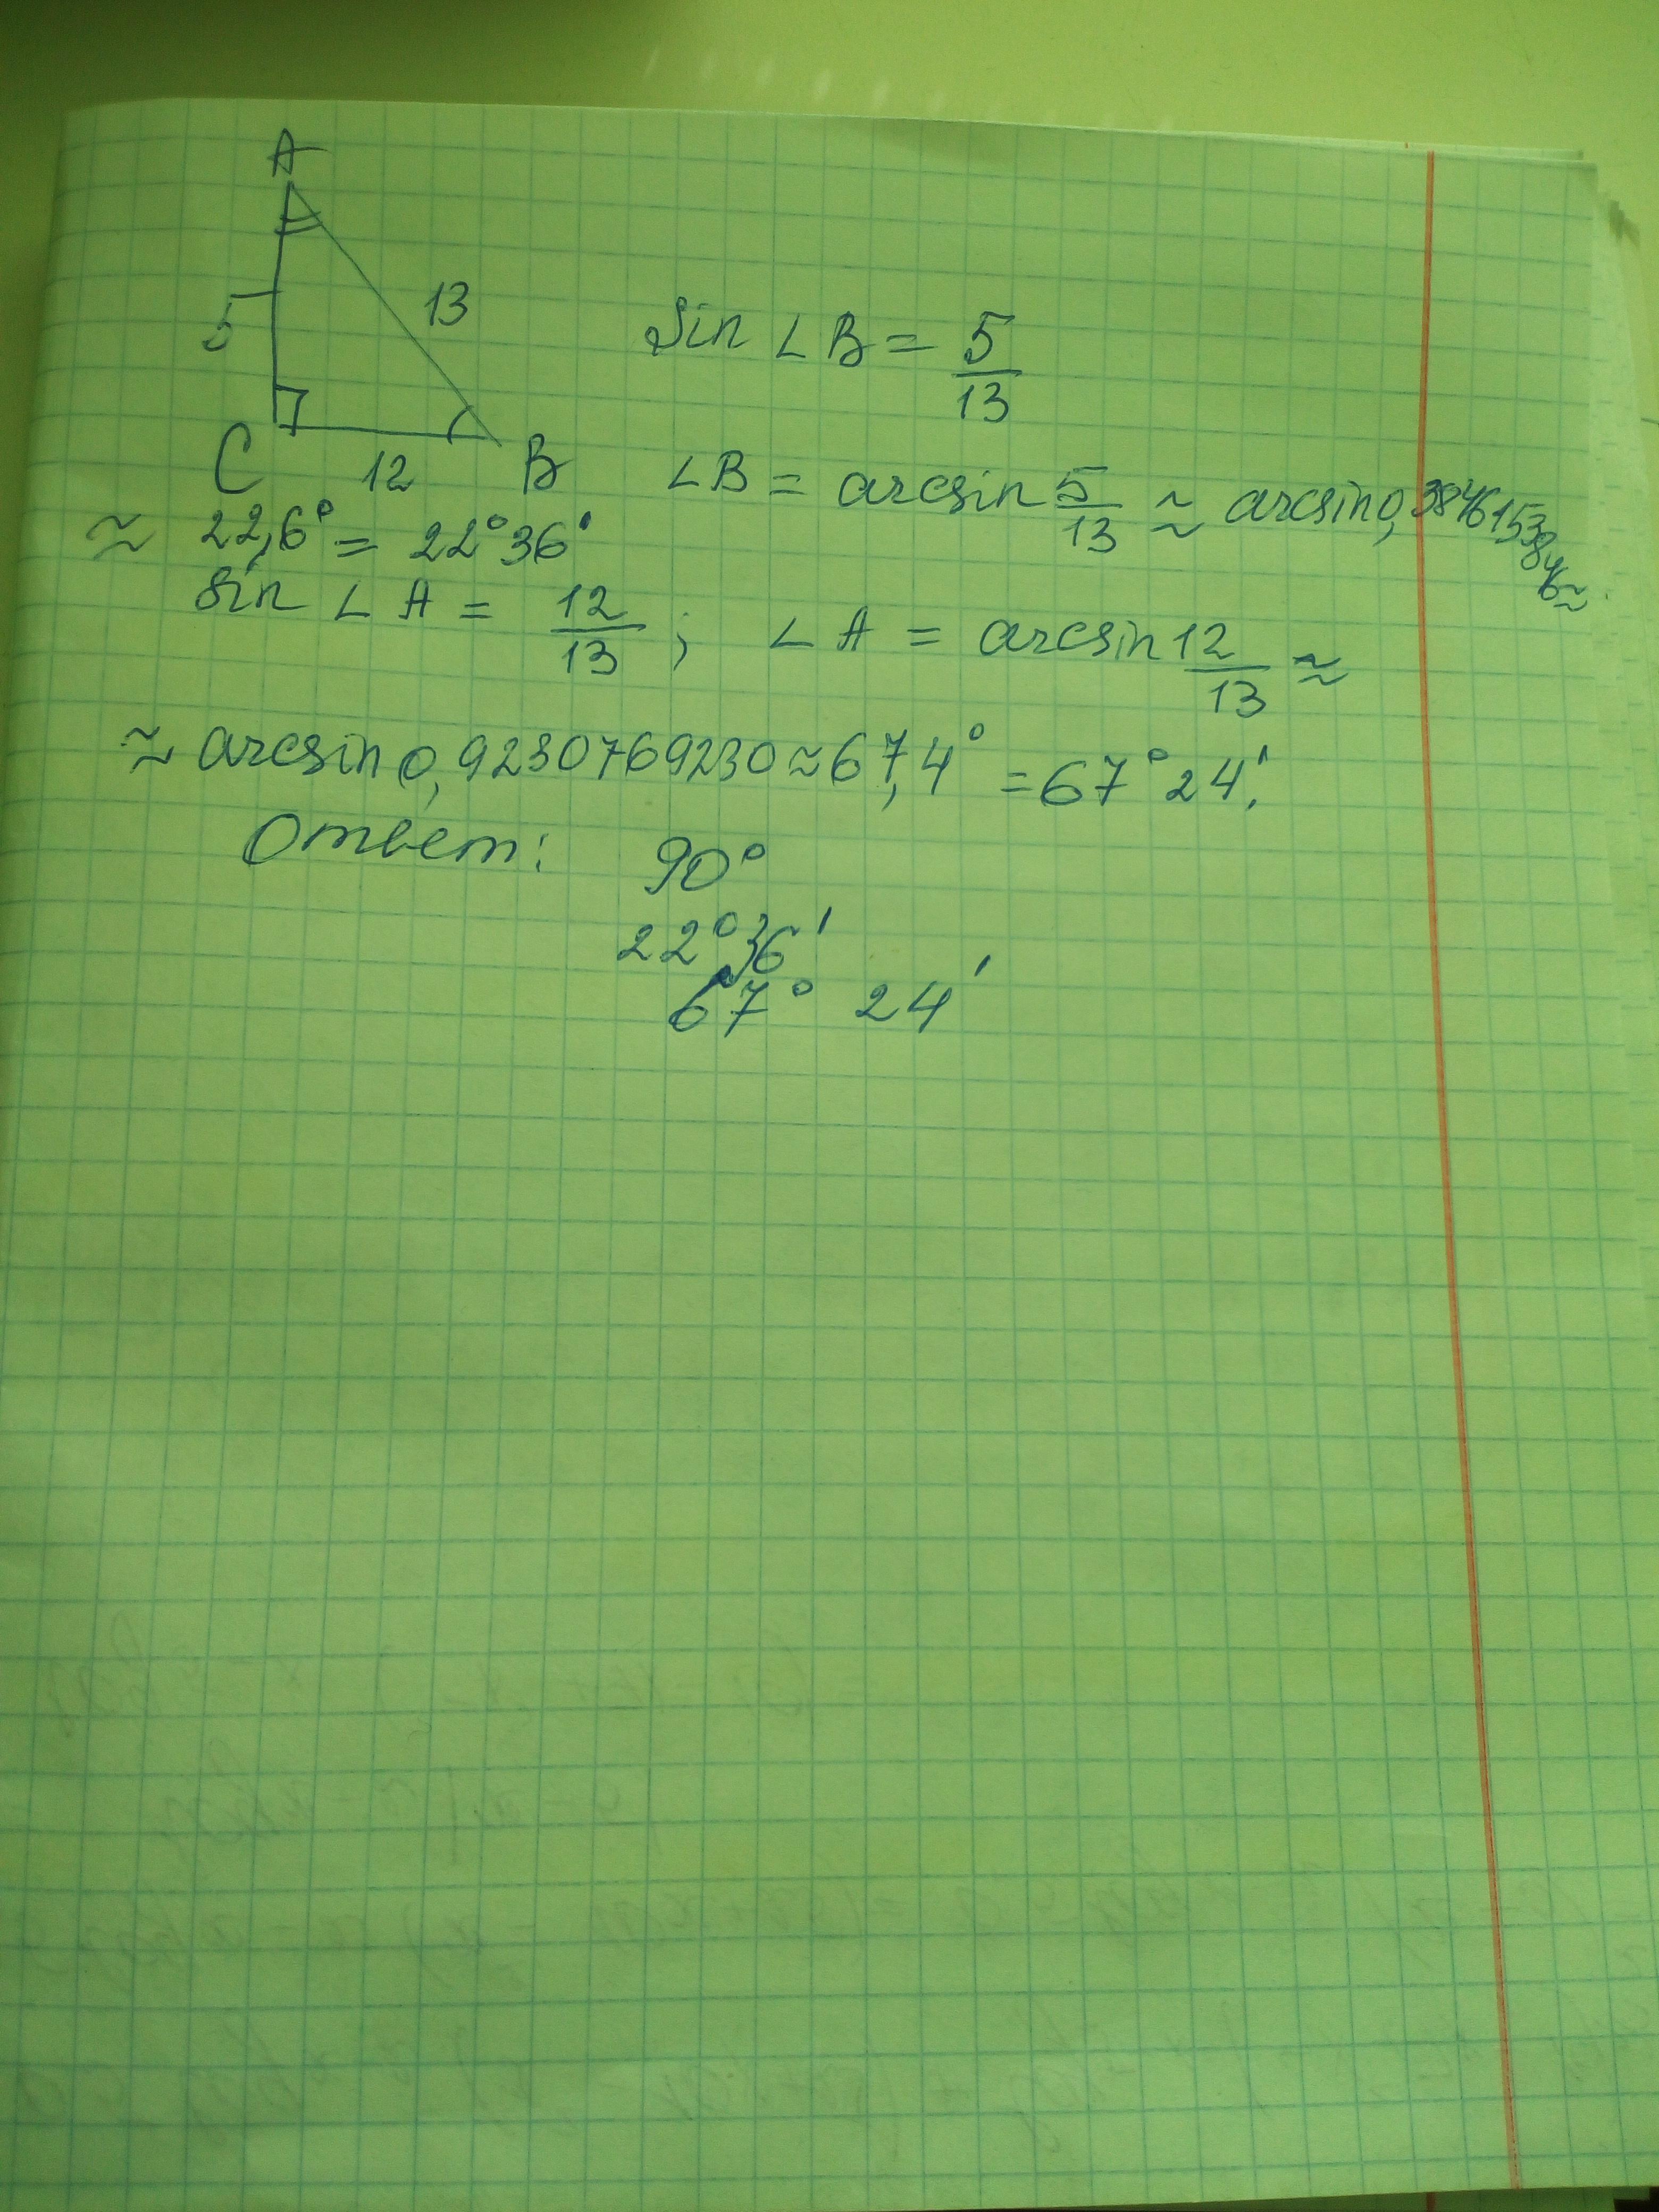 A
5
13
C
12
B
Sin ∠B = 5/13
∠B = arcsin 5/13 ≈ arcsin 0,3846153846 ≈
≈ 22,6° = 22°36'
Sin ∠A = 12/13; ∠A = arcsin 12/13 ≈
≈ arcsin 0,9230769230 ≈ 67,4° = 67°24'.
Ответ: 90°
22°36'
67° 24'